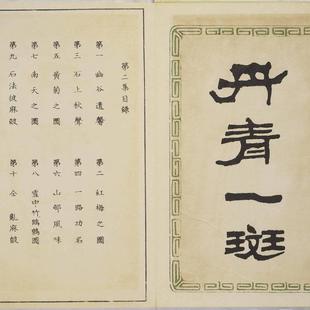 丹青一斑
第二集目錄
第一 幽谷遺馨 第二 紅梅之圖
第三 石上秋聲 第四 一路功名
第五 黃菊之圖 第六 山邨風味
第七 南天之圖 第八 雪中竹圖
第九 石法披麻皴 第十 仝 亂麻皴